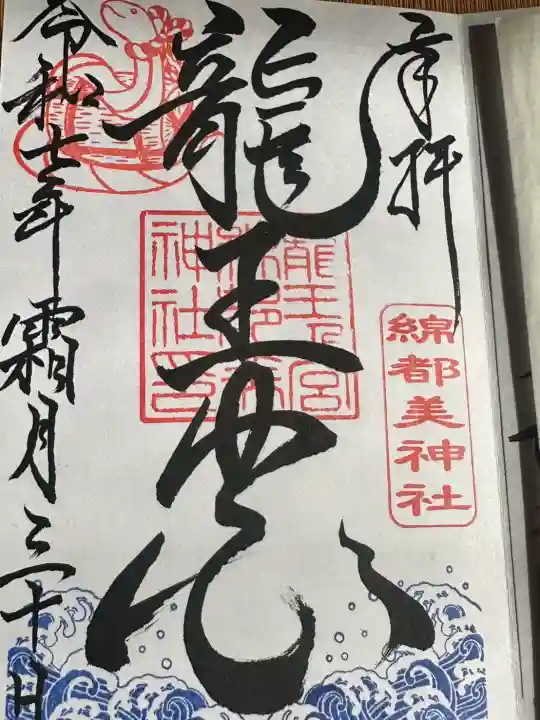 奉拝
綿都美神社
龍王
龍王宮
綿都美
神社印
令和七年霜月三十日